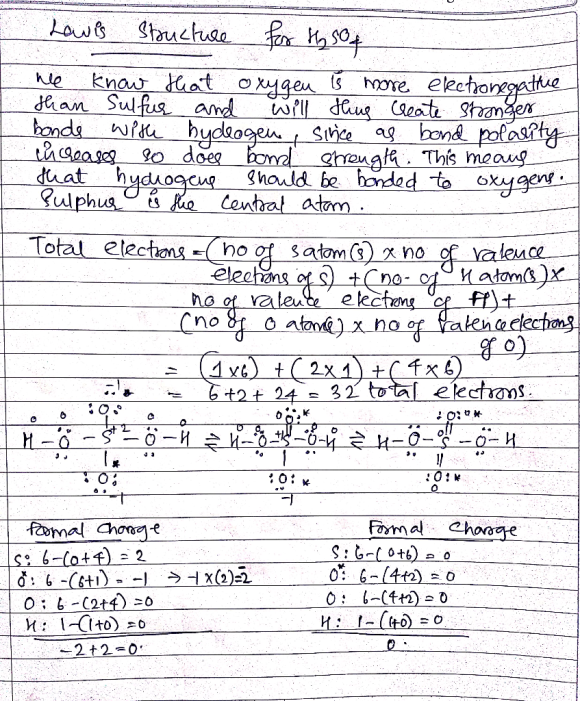 Lewis Structure for H₂SO₄
We know that oxygen is more electronegative
than Sulfur and will thus create stronger
bonds with hydrogen, since as bond polarity
increases so does bond strength. This means
that hydrogens should be bonded to oxygens.
Sulphur is the central atom.
Total electrons = (no of s atom(s) x no of valence
electrons of s) + (no. of H atom(s) x
no of valence electrons of H) +
(no of O atom(s) x no of valence electrons
of O)
= (1x6) + (2x1) + (4x6)
= 6+2+24 = 32 total electrons.
-1 *
:O: :O:* :O:*
H-O-S+2-O-H ⇌ H-O-+1S-O-H ⇌ H-O-S-O-H
* :O: :O:* :O:*
-1 -1
formal charge Formal charge
S: 6-(0+4) = 2 S: 6-(0+6) = 0
O*: 6-(6+1) = -1 → -1x(2)=-2 O*: 6-(4+2) = 0
O: 6-(2+4) = 0 O: 6-(4+2) = 0
H: 1-(1+0) = 0 H: 1-(1+0) = 0
-2+2=0. 0.